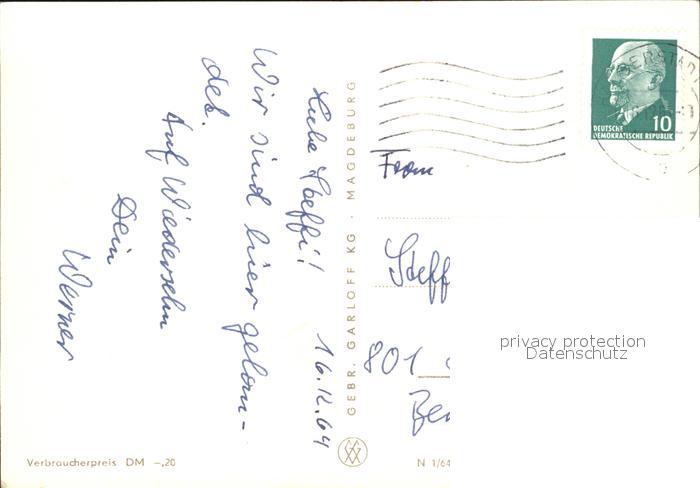 Liebe Steffi! 16.12.64
Wir sind hier gelan-
det.
Auf Wiedersehn
Dein
Werner
GEBR. GARLOFF KG · MAGDEBURG
DEUTSCHE
DEMOKRATISCHE REPUBLIK 10
Steff
801
privacy protection
Datenschutz
Verbraucherpreis DM –,20
N 1/64